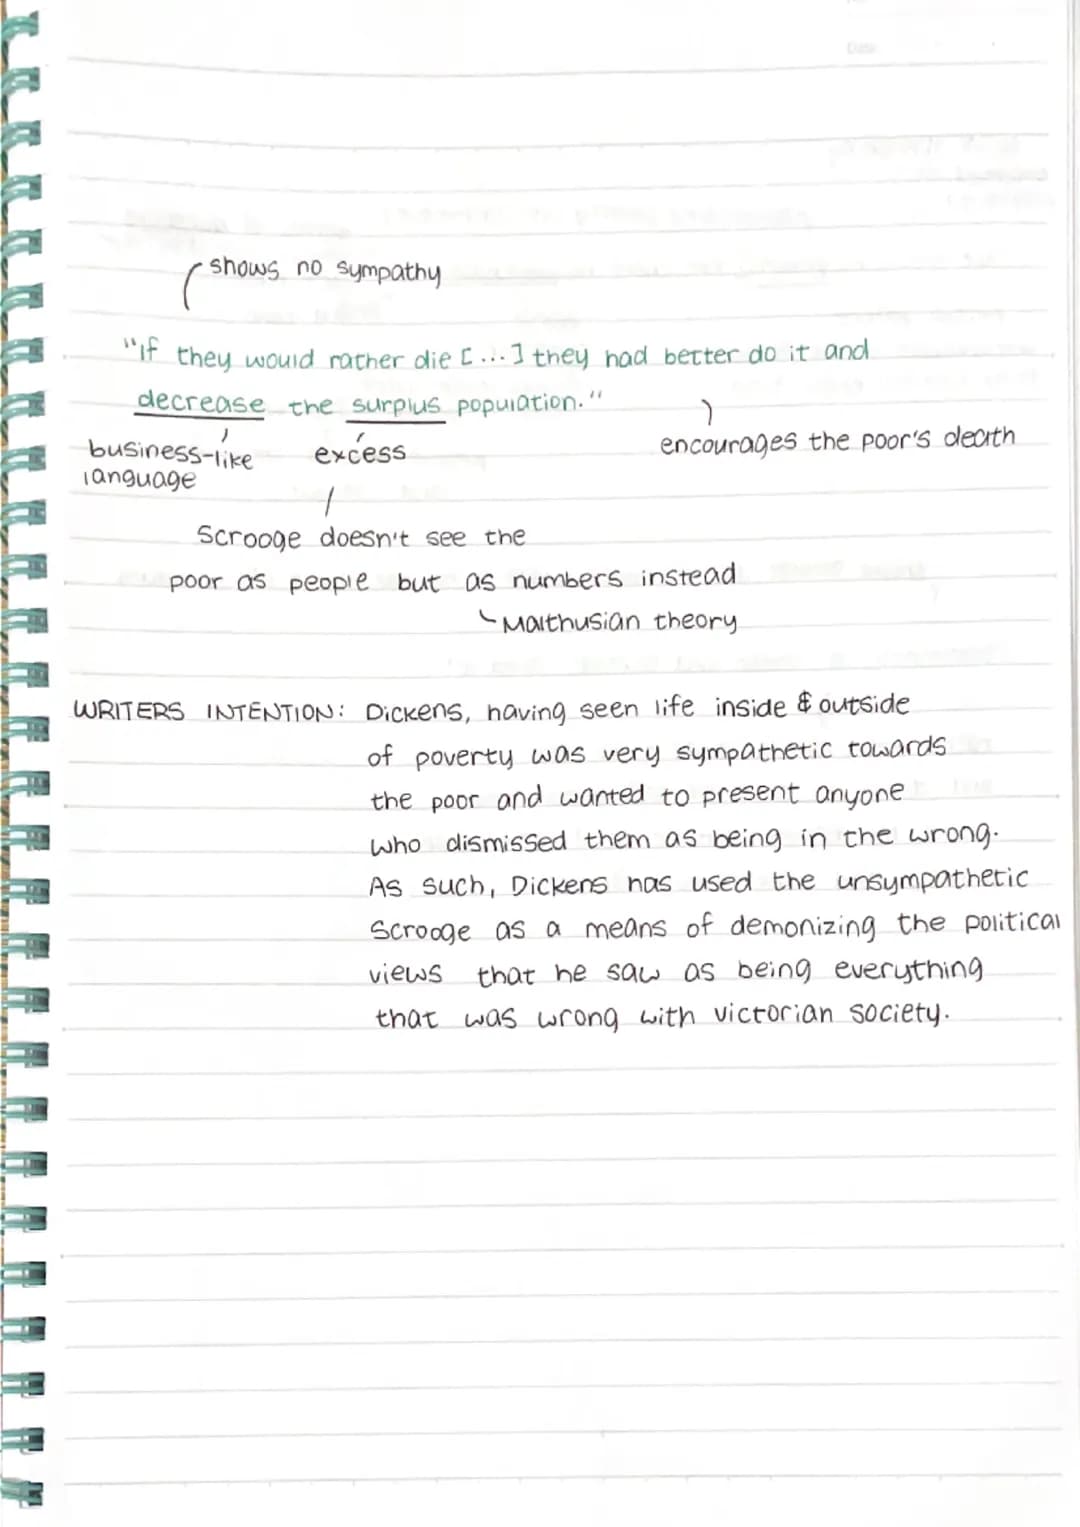 Date
shows no sympathy
"If they would rather die [...] they had better do it and
decrease the surplus population."
business-like
language
excess
encourages the poor's death
Scrooge doesn't see the
poor as people but as numbers instead
Malthusian theory
WRITERS INTENTION: Dickens, having seen life inside & outside
of poverty was very sympathetic towards
the poor and wanted to present anyone
who dismissed them as being in the wrong.
As such, Dickens has used the unsympathetic
Scrooge as a means of demonizing the political
views that he saw as being everything
that was wrong with victorian society.